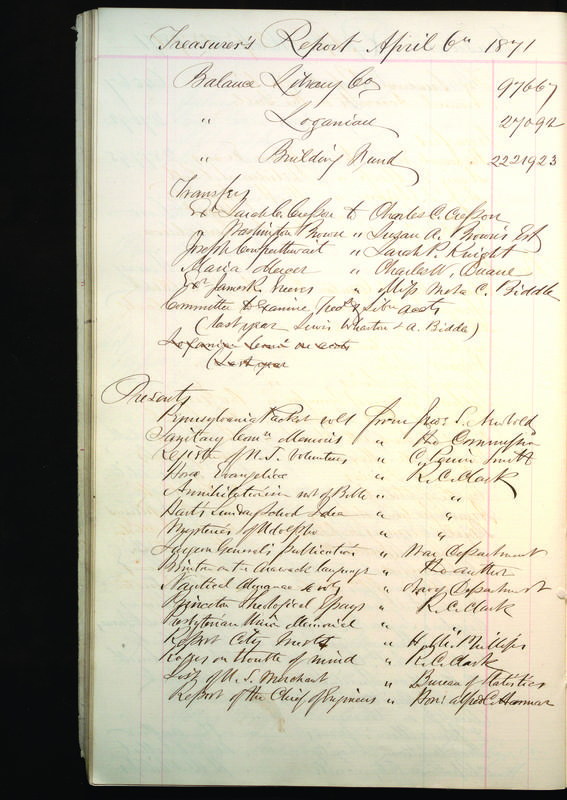 Treasurer's Report April 6th 1871
Balance Library Co 976 67
" Loganian 270 92
" Building Fund 2221 923
Transfers
Exr Sarah C. Cresson to Charles C. Cresson
" Washington Brown " Susan A. Brown's Est
Joseph Cowperthwait " Sarah P. Knight
Maria Mercer " Charles W. Duane
Exr James R. Greeves " Miss Meta C. Biddle
Committee to Examine Treas & Libn accts
(last year Lewis Wharton & A. Biddle)
Loganian Comm on accts
(Last year
Presents
Pennsylvania Packet vols from Geo: L. Newbold
Sanitary Comn Memoirs " The Commission
Register of U.S. Volunteers " C. Smith
Horae Evangelicae " K. C. Clark
Annihilationism not of Bible " "
Hart's Sunday School Idea " "
Mysteries of Udolpho " "
Surgeon General's Publication " War Department
Brinton on the Arawack language " The author
Nautical Almanac 2 vols " Navy Department
Princeton Theological Essays " K. C. Clark
Presbyterian Memorial "
Report City Trusts " H. M. Phillips
on Trouble of mind " K. C. Clark
List of U. S. Merchant " Bureau of Statistics
Report of the Chief of Engineers " Hon: Alfred C. Harmer